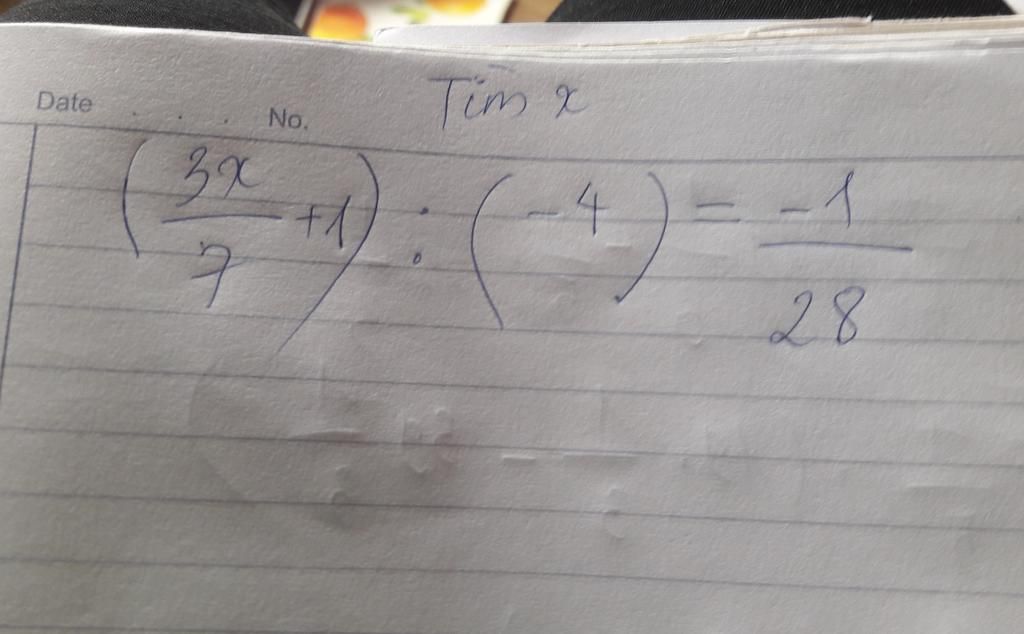 Date . . . . No.
Tìm x
(3x/7 + 1) : (-4) = -1/28